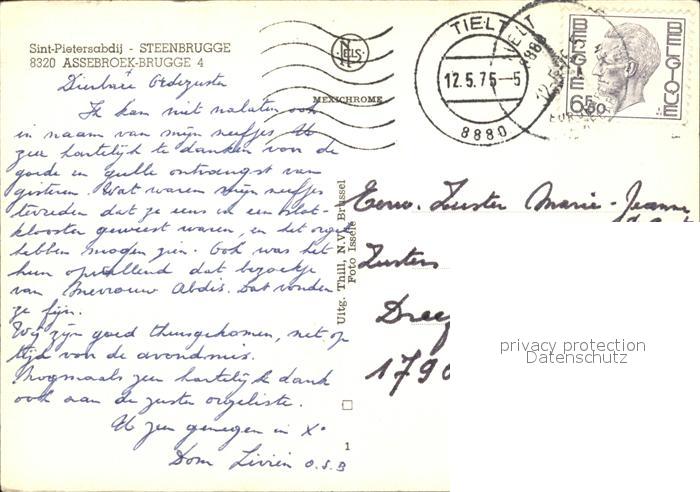 Sint-Pietersabdij - STEENBRUGGE
8320 ASSEBROEK-BRUGGE 4
NELS
MEXICHROME
TIELT
12.5.75-5
8880
BELGIE
BELGIQUE
6.50
Dierbare Ordezuster
Ik kan niet nalaten ook
in naam van mijn neefjes U
zeer hartelijk te danken voor de
goede en gulle ontvangst van
gisteren. Wat waren mijn neefjes
tevreden dat ze eens in een slot-
klooster geweest waren, en het orgel
hebben mogen zien. Ook was het
hun opvallend dat bezoekje
van Mevrouw Abdis. Dat vonden
ze fijn.
Wij zijn goed thuisgekomen, net op
tijd voor de avondmis.
Nogmaals zeer hartelijk dank
ook aan de zuster orgeliste.
U zeer genegen in X°
Dom Livien O.S.B
Uitg. Thill, N.V. Brussel
Foto Issele
1
Eerw. Zuster Marie-Jeanne
Zusters
Dree
1790
privacy protection
Datenschutz